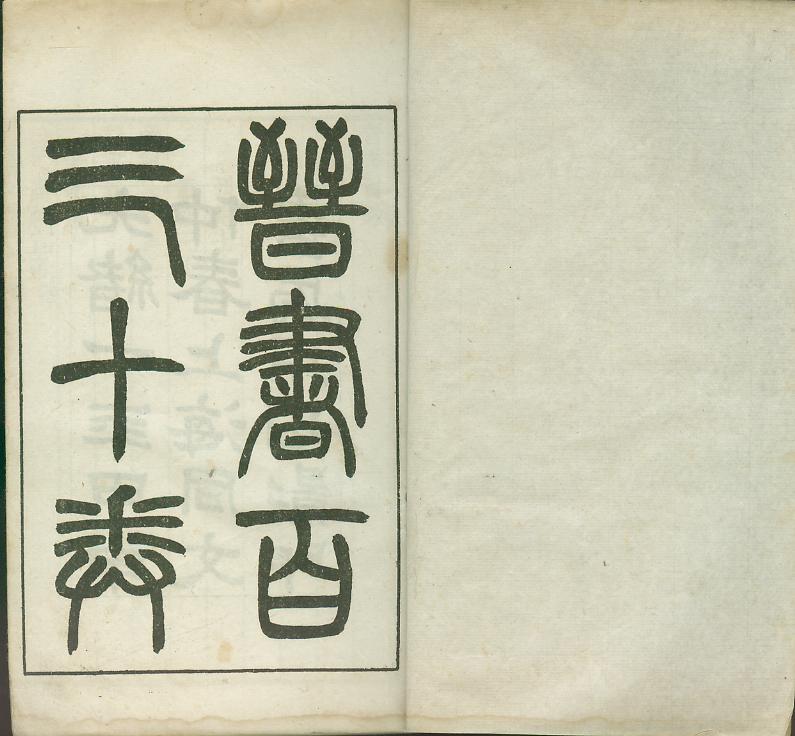 晉書百
三十卷